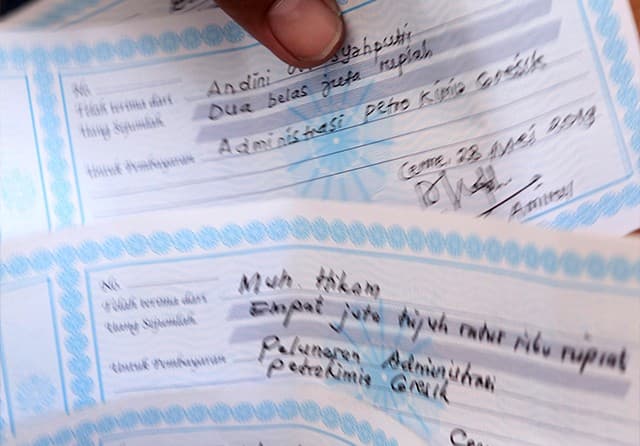 No.
Telah terima dari Andini syahputri
Uang Sejumlah Dua belas juta rupiah
Untuk Pembayaran Administrasi Petro Kimia Gresik
Cerme, 28 Mei 2018
No.
Telah terima dari Muh. Hikam
Uang Sejumlah Empat juta tujuh ratus ribu rupiah
Untuk Pembayaran Pelunasan Administrasi
Petrokimia Gresik